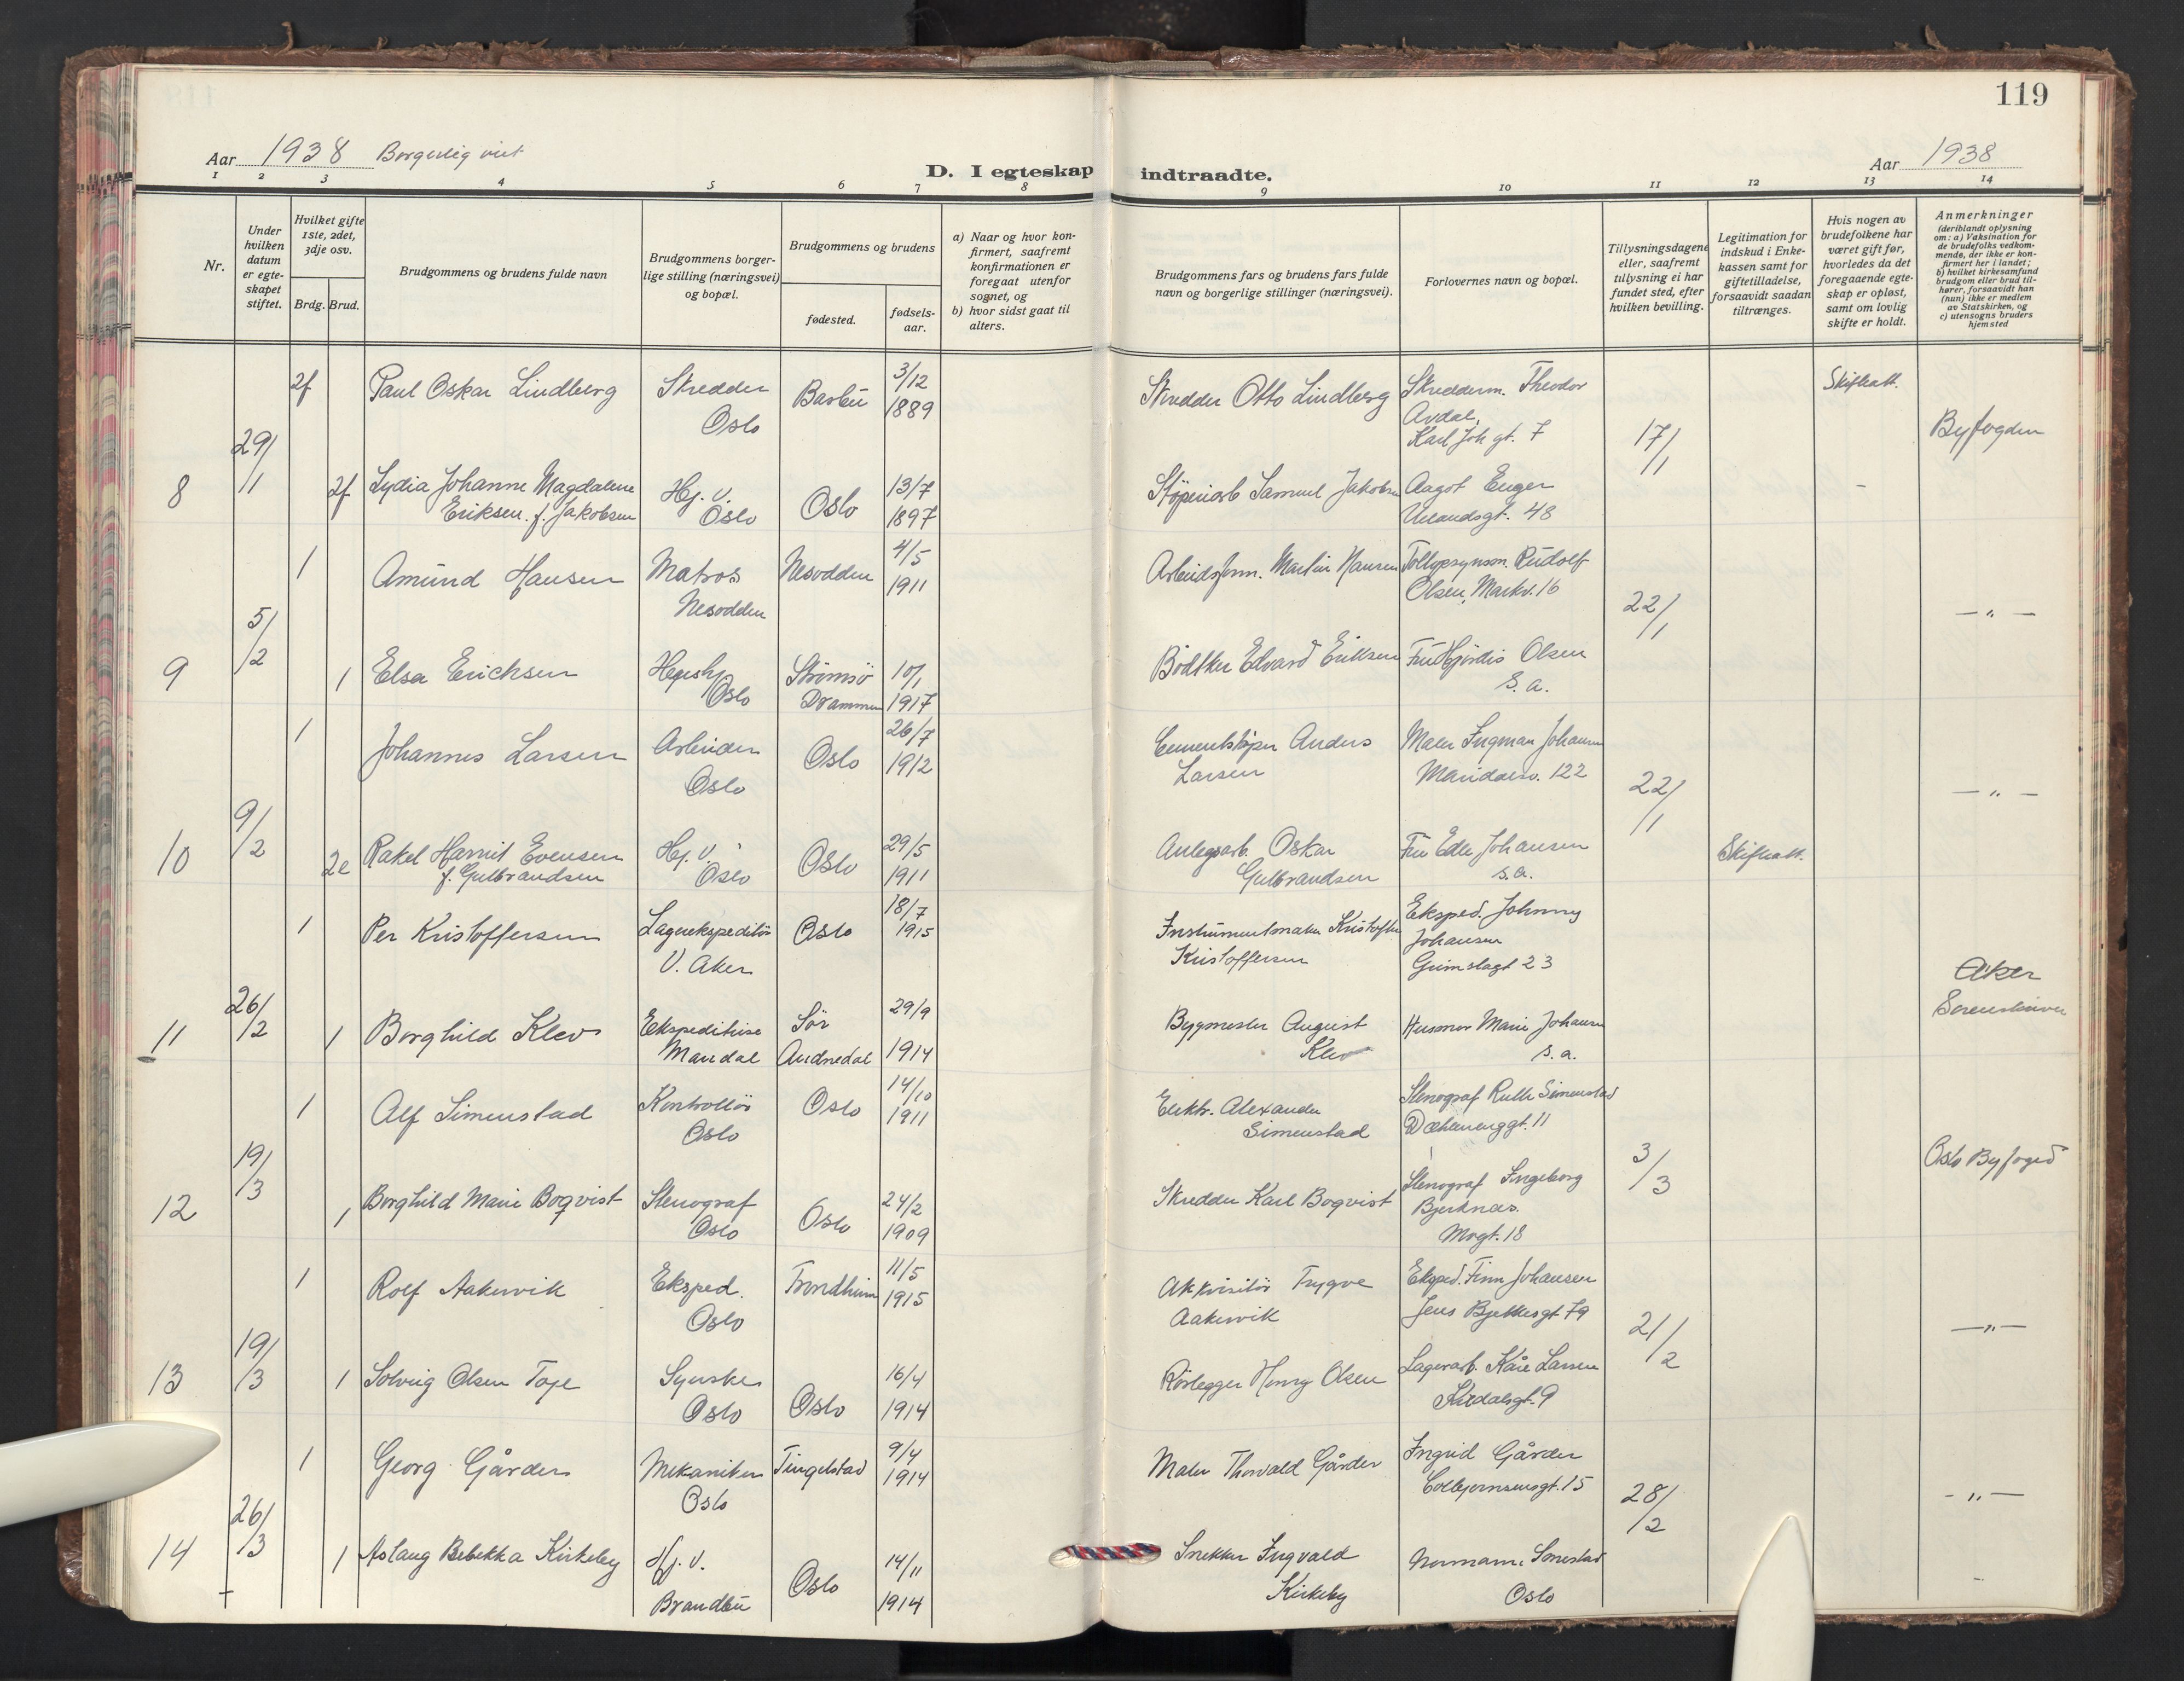 119
Aar 1938 Borgerlig viet
D. I egteskap indtraadte.
Aar 1938
1 2 3 4 5 6 7 8 9 10 11 12 13 14
Nr.
Under hvilken datum er egteskapet stiftet.
Hvilket gifte 1ste, 2det, 3dje osv.
Brdg. Brud.
Brudgommens og brudens fulde navn
Brudgommens borgerlige stilling (næringsvei) og bopæl.
Brudgommens og brudens
fødested.
fødselsaar.
a) Naar og hvor konfirmert, saafremt konfirmationen er foregaat utenfor sognet, og
b) hvor sidst gaat til alters.
Brudgommens fars og brudens fars fulde navn og borgerlige stillinger (næringsvei).
Forlovernes navn og bopæl.
Tillysningsdagene eller, saafremt tillysning ei har fundet sted, efter hvilken bevilling.
Legitimation for indskud i Enkekassen samt for giftetilladelse, forsaavidt saadan tiltrænges.
Hvis nogen av brudefolkene har været gift før, hvorledes da det foregaaende egteskap er opløst, samt om lovlig skifte er holdt.
Anmerkninger (deriblandt oplysning om: a) Vaksination for de brudefolks vedkommende, der ikke er konfirmert her i landet; b) hvilket kirkesamfund brudgom eller brud tilhører, forsaavidt han (hun) ikke er medlem av Statskirken, og c) utensogns bruders hjemsted
8 29/1
2f Paul Oskar Lindberg Skredder Oslo Barbu 3/12 1889 Skredder Otto Lindberg Skredderm. Theodor Avdal, Karl Joh gt. 7 17/1 Skifteatt. Byfogden
2f Lydia Johanne Magdalene Eriksen f. Jakobsen Hj. v. Oslo Oslo 13/7 1897 Støperiarb Samuel Jakobsen Aagot Enger Uelandsgt. 48
9 5/2
1 Amund Hansen Matros Nesodden Nesodden 4/5 1911 Arbeidsform. Martin Hansen Tollopsynsm. Rudolf Olsen, Markv. 16 22/1 — " —
1 Elsa Erichsen Oslo Strømsø Drammen 10/1 1917 Bødtker Edvard Eriksen Fru Hjørdis Olsen s. a.
10 9/2
1 Johannes Larsen Arbeider Oslo Oslo 26/7 1912 Cementstøper Anders Larsen Maler Ingman Johansen Maridalsv. 122 22/1 — " —
2e Rakel Harriet Evensen f. Gulbrandsen Hj. v. Oslo Oslo 29/5 1911 Anlegsarb. Oskar Gulbrandsen Fru Edle Johansen s. a. Skifteatt.
11 26/2
1 Per Kristoffersen Lagerekspeditør V. Aker Oslo 18/7 1915 Instrumentmaker Kristoffer Kristoffersen Eksped. Johnny Johansen Grimstagt 23 Aker Sorenskriver
1 Borghild Klev Ekspeditrise Mandal Sør Audnedal 29/9 1914 Bygmester August Klev Husmor Marie Johansen s. a.
12 19/3
1 Alf Simenstad Kontrollør Oslo Oslo 14/10 1911 Elektr. Alexander Simenstad Stenograf Ruth Simenstad Dæhlenenggt. 11 3/3 Oslo Byfoged
1 Borghild Marie Boqvist Stenograf Oslo Oslo 24/2 1909 Skredder Karl Boqvist Stenograf Ingeborg Bjerknæs. 18
13 19/3
1 Rolf Aakervik Eksped. Oslo Trondheim 11/5 1915 Akkvisitør Trygve Aakervik Eksped. Finn Johansen Jens Bjelkesgt 79 21/2 — " —
1 Solveig Olsen Toje Syerske Oslo Oslo 16/4 1914 Rørlegger Henry Olsen Lagerarb. Kåre Larsen 9
14 26/3
1 Georg Gårder Mekaniker Oslo Tingelstad 9/4 1914 Maler Thorvald Gårder Ingrid Gårder Colbjørnsensgt. 15 28/2 — " —
1 Aslaug Bebekka Kirkeby Hj. v. Brandbu Oslo 14/11 1914 Snekker Ingvald Kirkeby Oslo